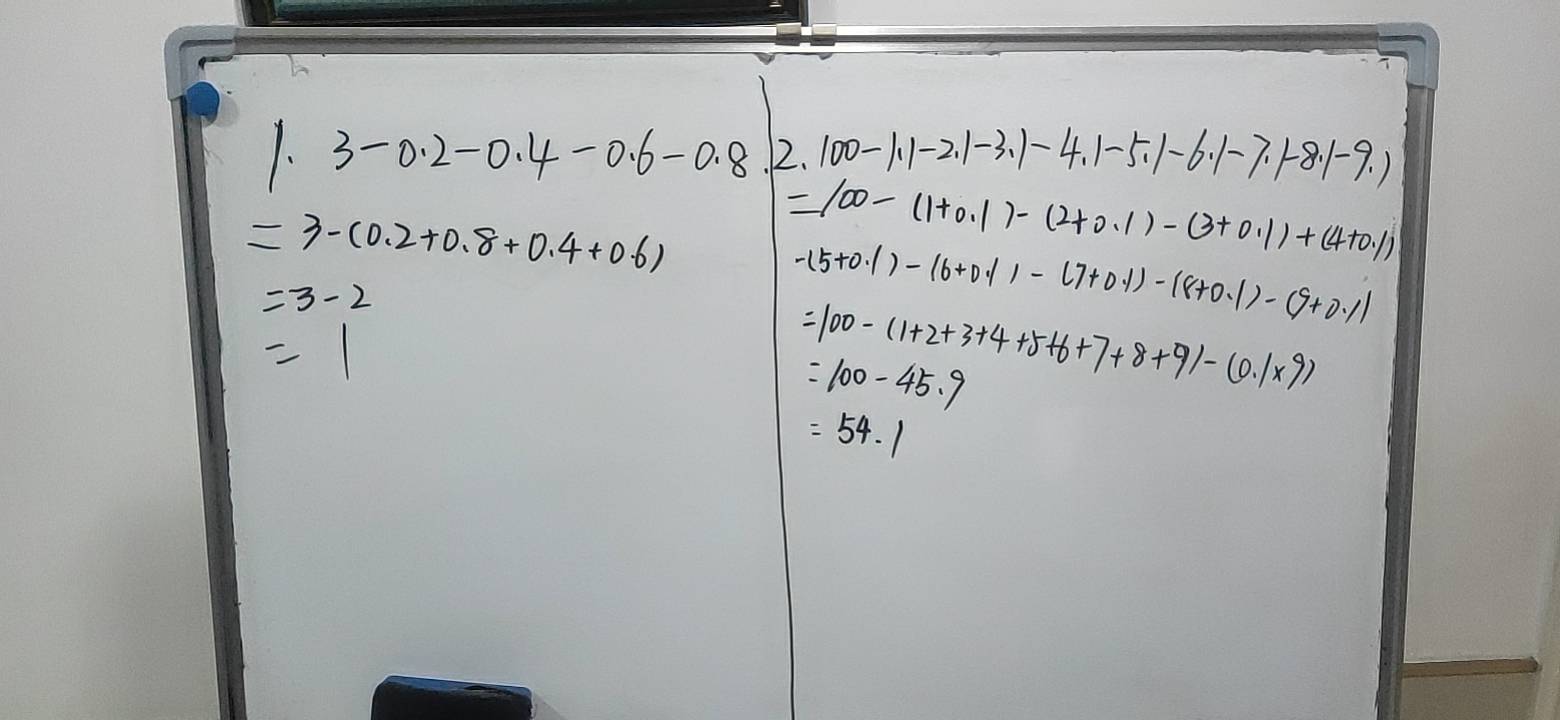 1. 3-0.2-0.4-0.6-0.8.
=3-(0.2+0.8+0.4+0.6)
=3-2
=1
2. 100-1.1-2.1-3.1-4.1-5.1-6.1-7.1-8.1-9.1
=100-(1+0.1)-(2+0.1)-(3+0.1)+(4+0.1)
-(5+0.1)-(6+0.1)-(7+0.1)-(8+0.1)-(9+0.1)
=100-(1+2+3+4+5+6+7+8+9)-(0.1×9)
=100-45.9
=54.1